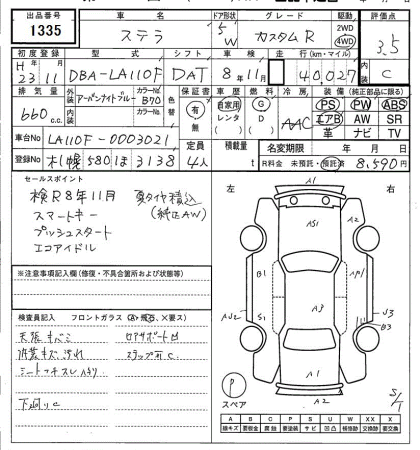 出品番号 車名 ドア形状 グレード 駆動 評価点
1335 ステラ 5 W カスタムR 2WD 4WD 3.5
初度登録 型式 シフト 車検 走行(km・マイル) 内装
H 23 11 DBA-LA110F DAT 8年11月 40,027 C
排気量 外装 アーバンナイトブルー カラーNo. B70 色替 保証書 車歴 燃料 冷房 装備(純正部品に限る)
660 c.c. 内装 カラーNo. 有 無 自家用 レンタ G D AAC PS PW ABS
エアB AW SR
革 ナビ TV
車台No LA110F-0003021 定員 積載量 名変期限 年 月 日
登録No 札幌580ほ3138 4人 t R料金 未預託・預託済 8,590円
セールスポイント
検R8年11月 夏タイヤ積込
スマートキー (純正AW)
プッシュスタート
エコアイドル
※注意事項記入欄(修復・不具合箇所および状態等)
検査員記入 フロントガラス(A・飛石、×要ス)
天張キバミ ロアサポート凹
内装キズ汚れ ステップ可C
シートコゲスレハタリ
下廻りC
左 右
A1
AS1 A2
B1 AP1
A3
AJ2 S1 J3
B3
A1
P A2 S/T
スペア
A B C P S U W X XX X
線キズ 要板金 腐蝕 要塗装 サビ 凹凸 補修跡 交換跡 要交換